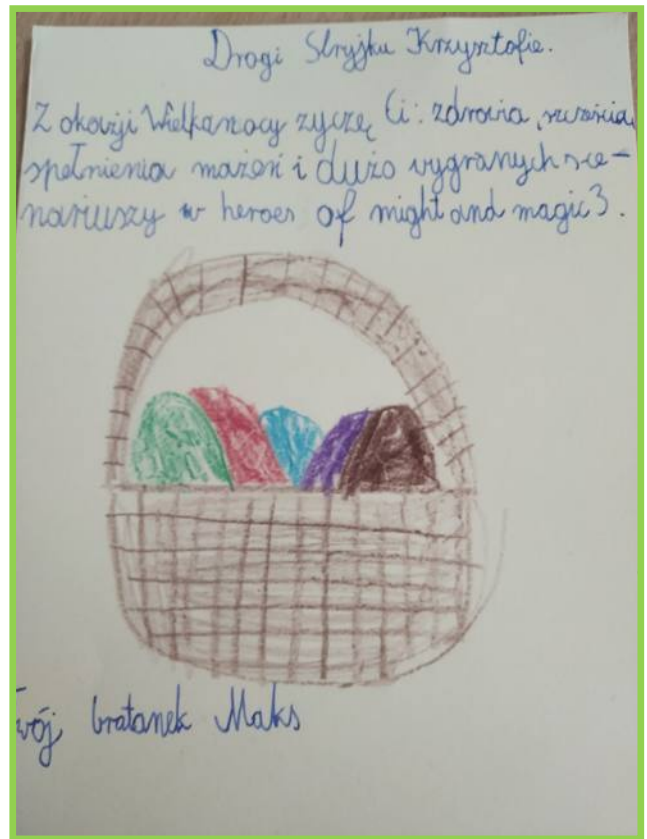 Drogi Stryjku Krzysztofie.
Z okazji Wielkanocy zyczę Ci: zdrowia, szczęścia,
spełnienia mażeń i dużo wygranych sce-
nariuszy w heroes of might and magic 3.
Twój bratanek Maks